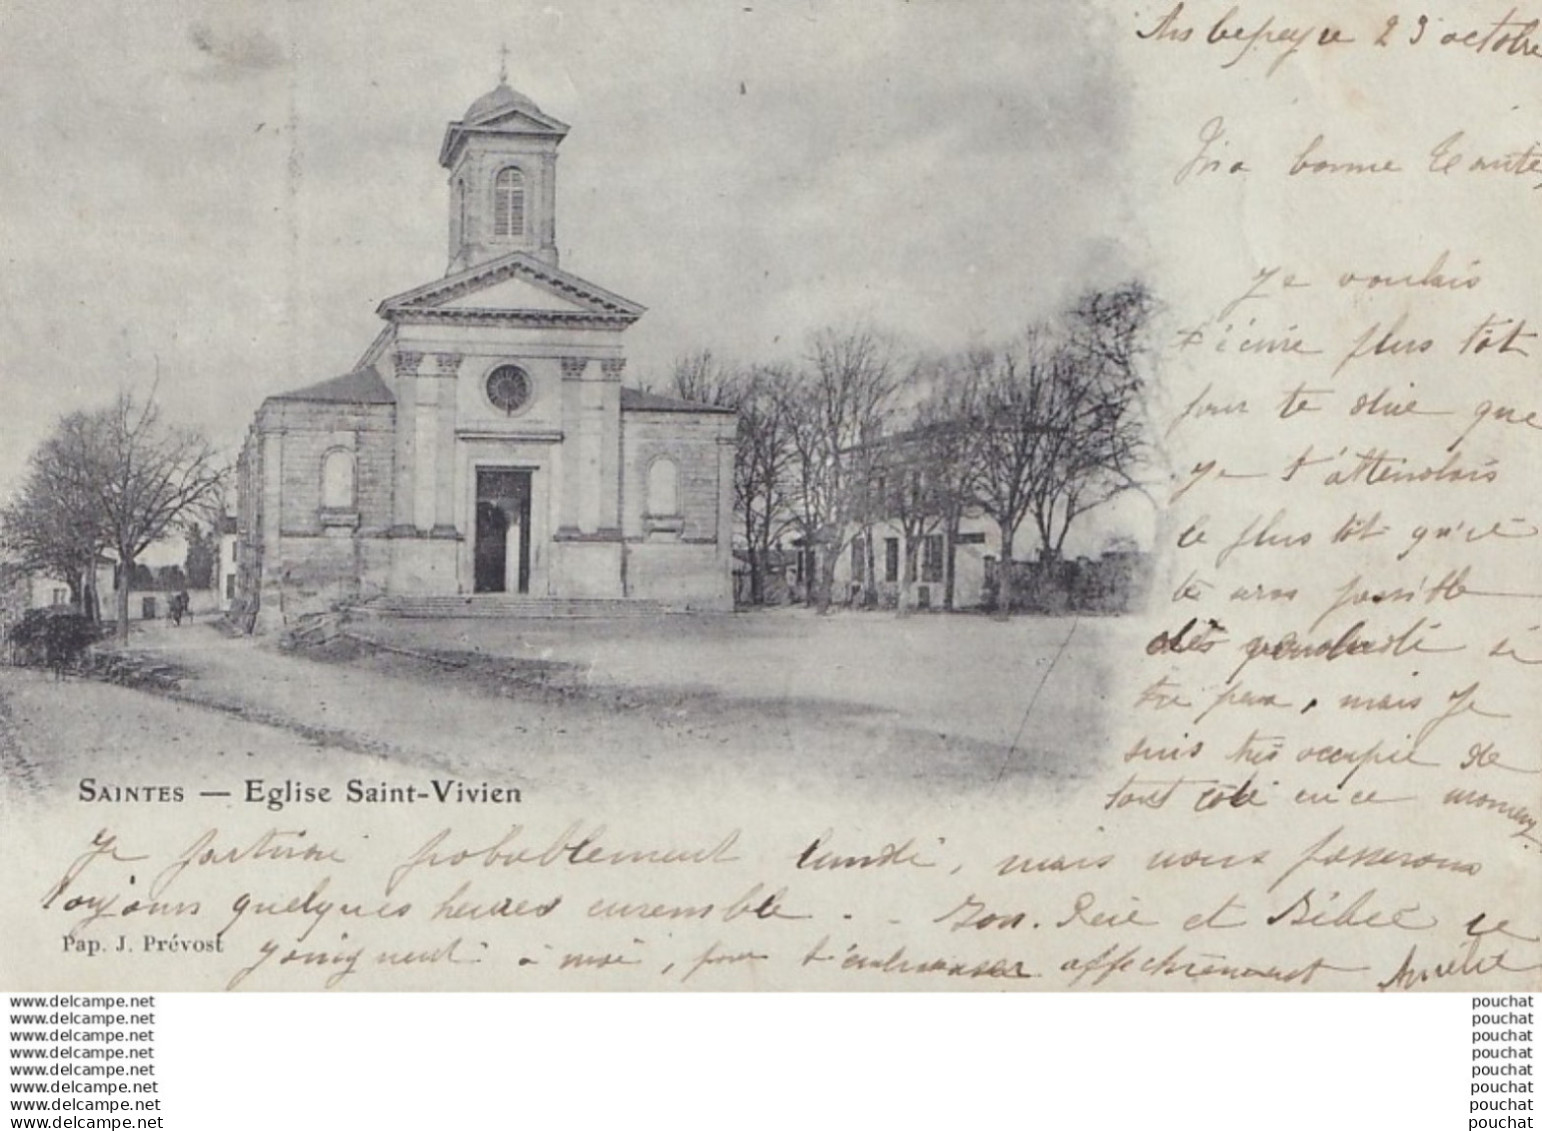 23 octobre
bonne Tante,
Je voulais
t'écrire plus tôt
pour te dire que
je t'attendais
le plus tôt qu'il
te sera possible
dès
mais je
suis très occupée de
tout côté en ce moment
SAINTES — Eglise Saint-Vivien
Je partirai probablement lundi, mais nous passerons
toujours quelques heures ensemble - -
Père et Bébé se
Pap. J. Prévost
joignent à moi, pour t'embrasser affectueusement
www.delcampe.net
www.delcampe.net
www.delcampe.net
www.delcampe.net
www.delcampe.net
www.delcampe.net
www.delcampe.net
www.delcampe.net
pouchat
pouchat
pouchat
pouchat
pouchat
pouchat
pouchat
pouchat